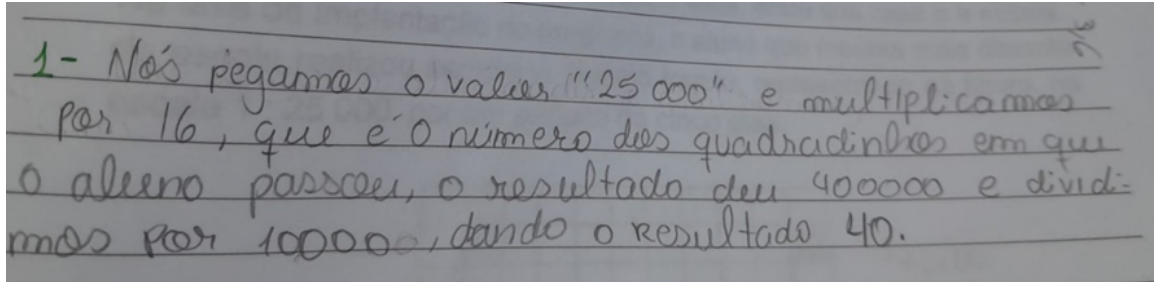 1- Nós pegamos o valor "25 000" e multiplicamos
por 16, que é o número dos quadradinhos em que
o aluno passou, o resultado deu 400000 e dividi-
mos por 10000, dando o resultado 40.